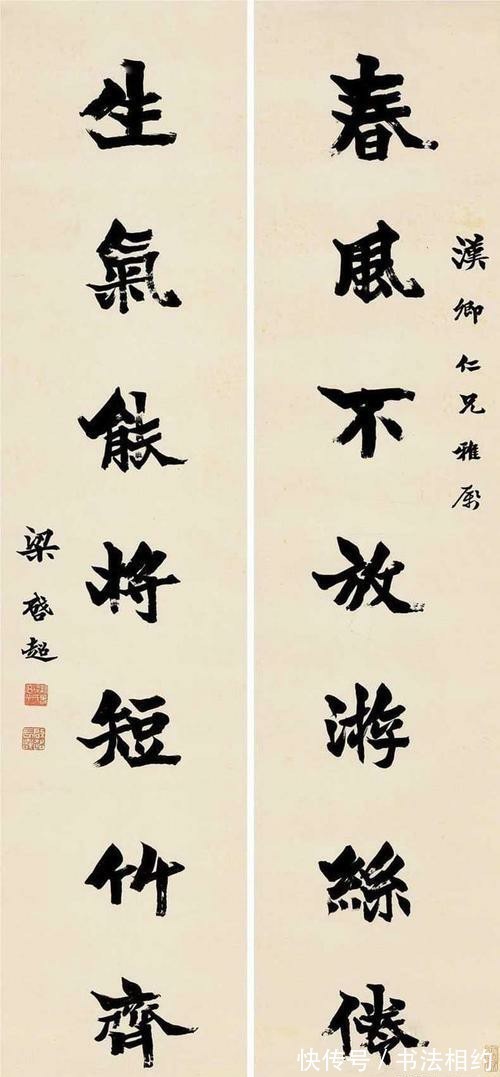 漢卿仁兄雅屬
春風不放游絲倦
生氣能將短竹齊
梁啓超
快传号/书法相约